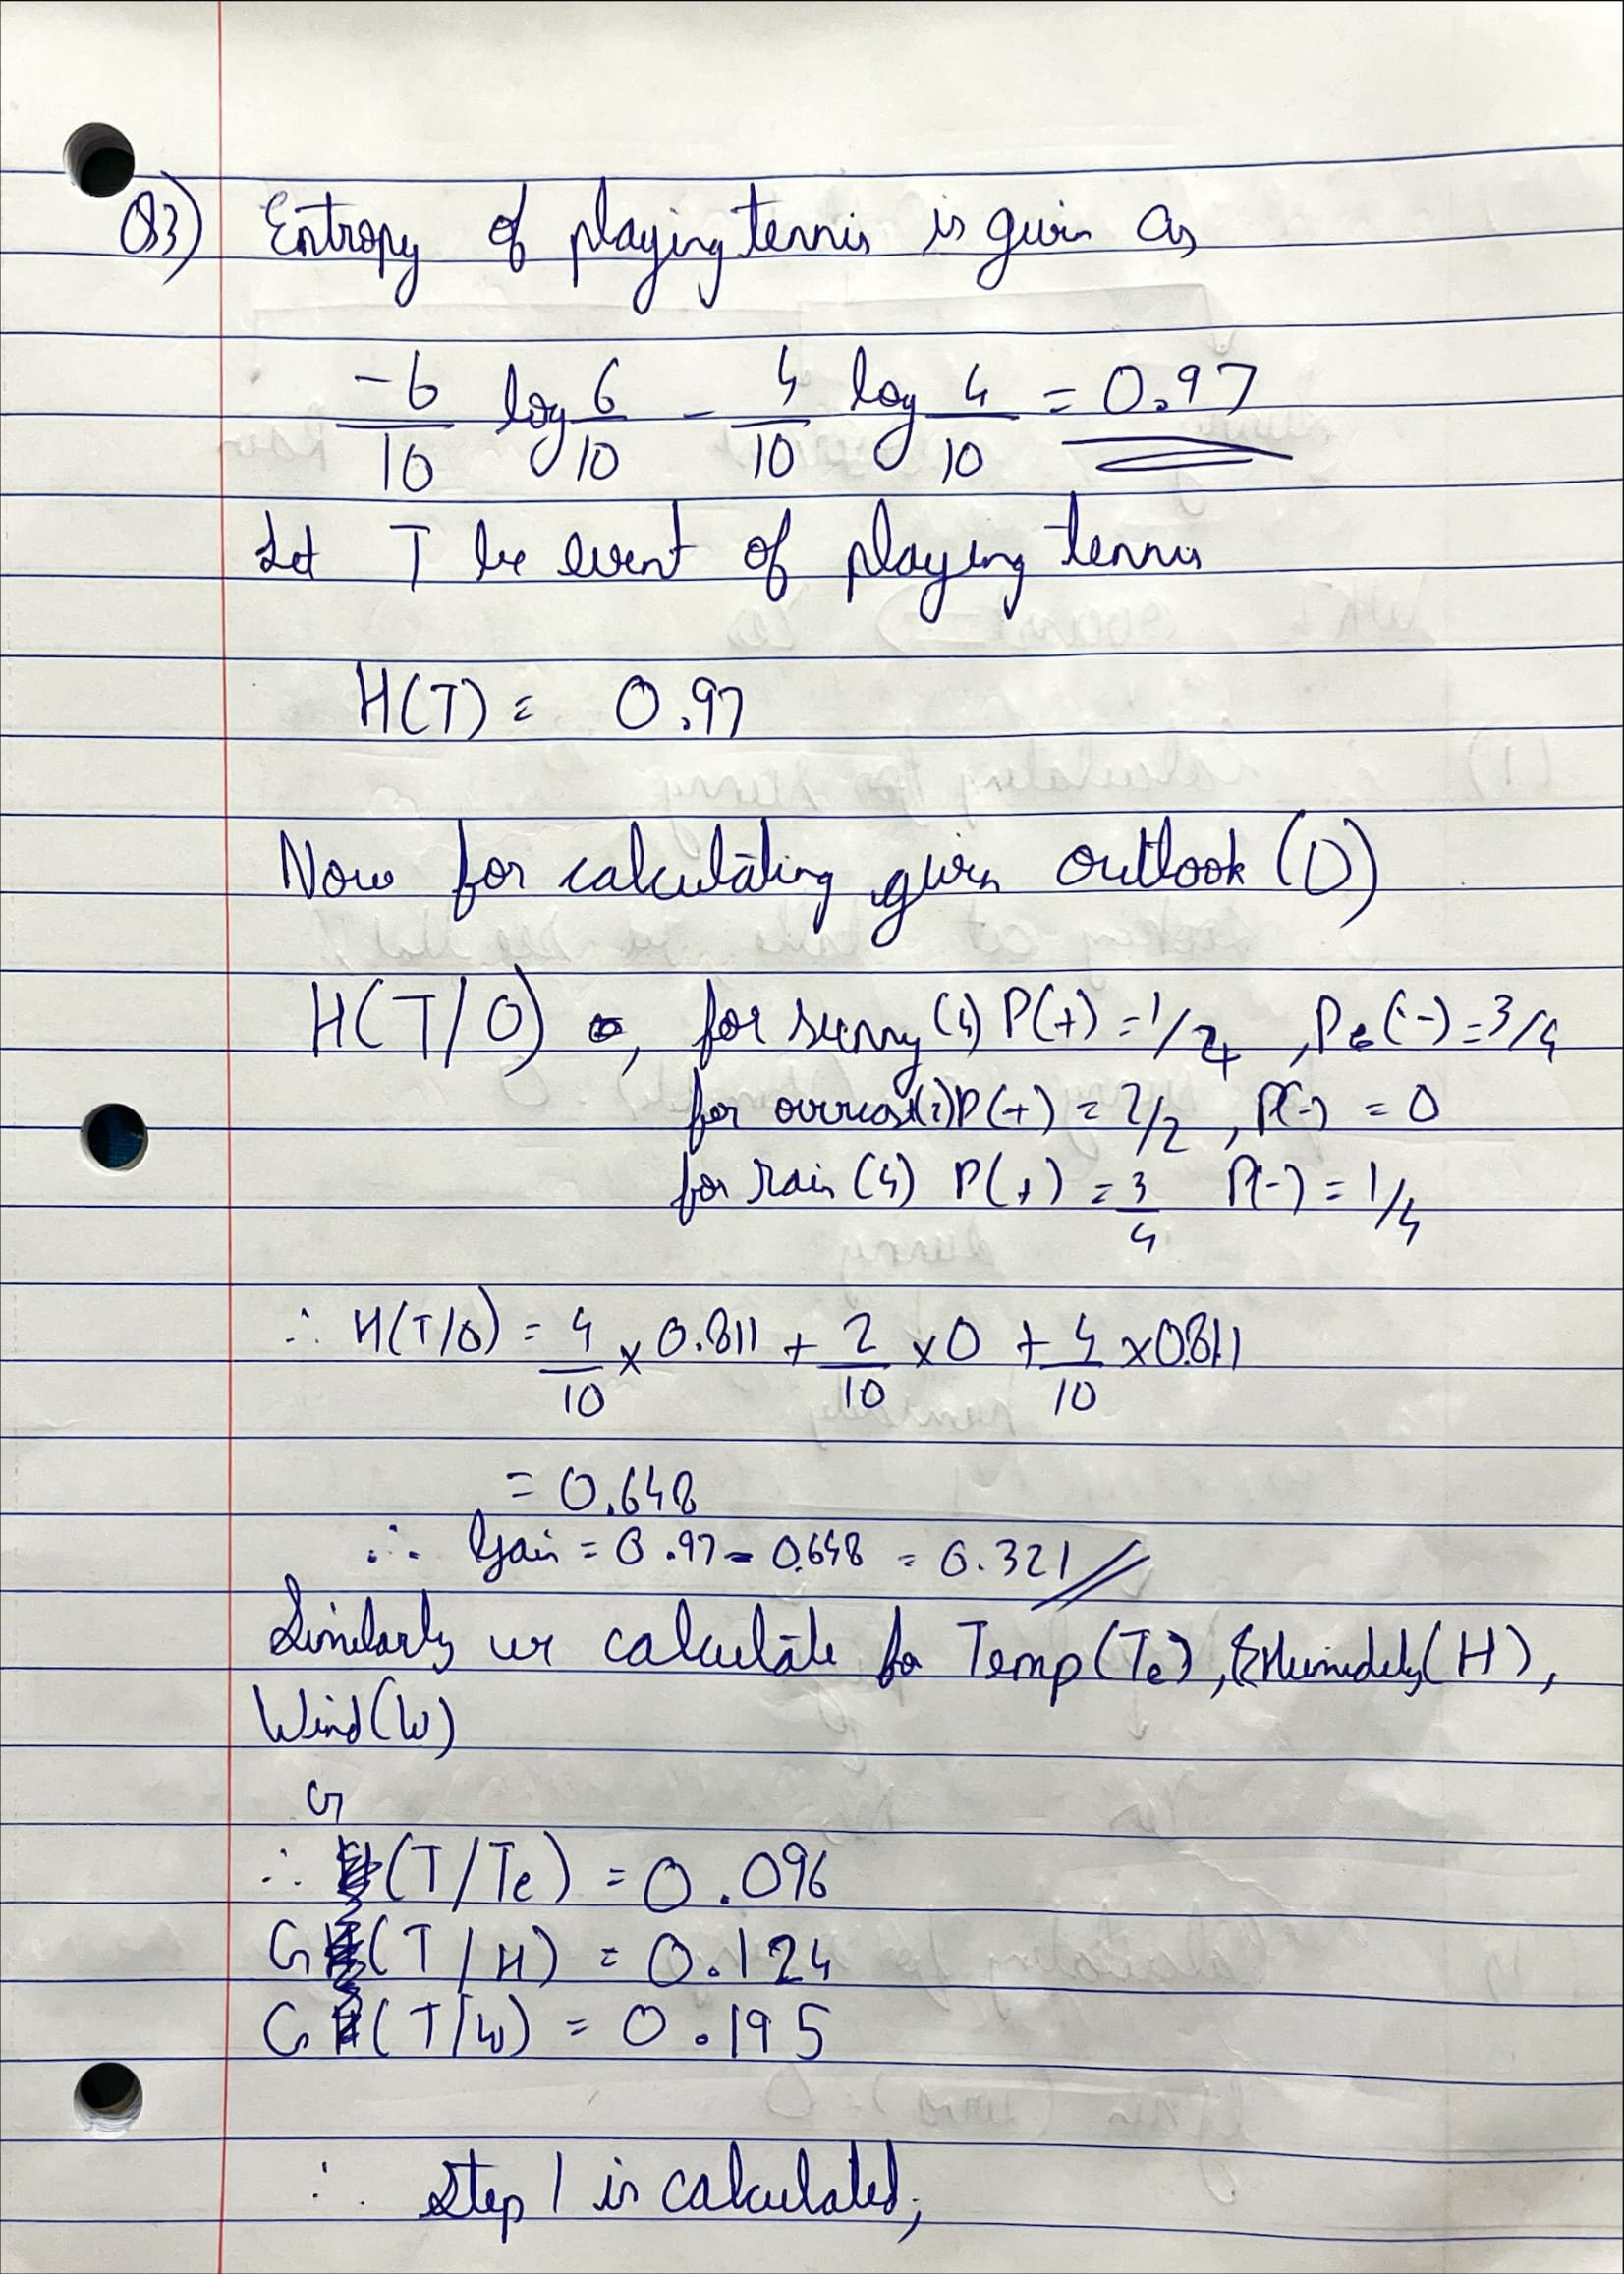 Q3) Entropy of playing tennis is given as
-6/10 log 6/10 - 4/10 log 4/10 = 0.97
Let T be event of playing tennis
H(T) = 0.97
Now for calculating given outlook (O)
H(T/O) , for sunny (4) P(+) = 1/4 , P(-) = 3/4
for overcast (2) P(+) = 2/2 , P(-) = 0
for rain (4) P(+) = 3/4 P(-) = 1/4
∴ H(T/O) = 4/10 x 0.811 + 2/10 x 0 + 4/10 x 0.811
= 0.648
∴ Gain = 0.97 - 0.648 = 0.321
Similarly we calculate for Temp(Te), Humidity(H),
Wind(W)
∴ G(T/Te) = 0.096
G(T/H) = 0.124
G(T/W) = 0.195
∴ Step 1 is calculated;